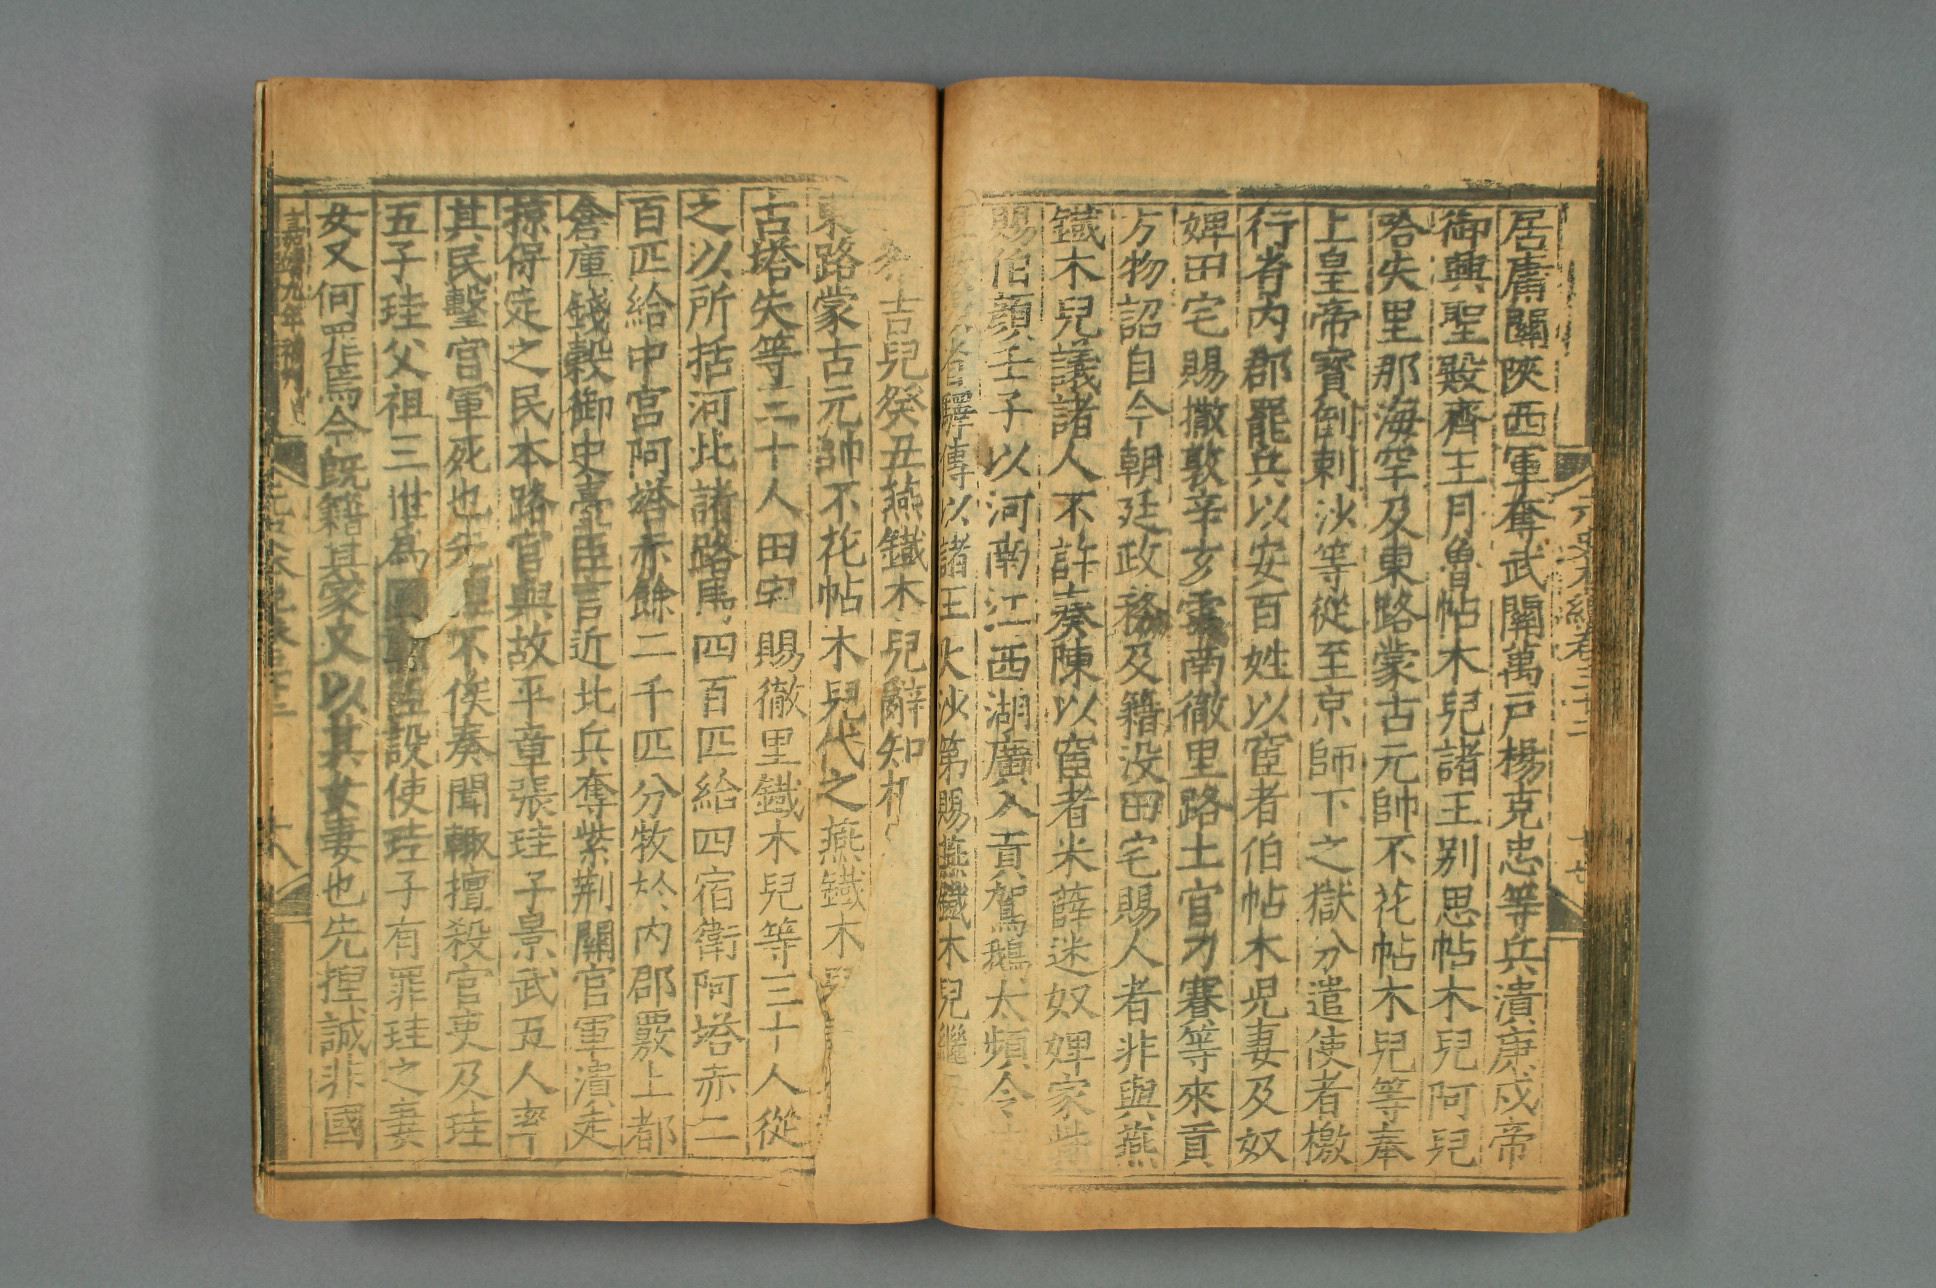 居庸關陝西軍奪武關萬戸楊克忠等兵潰庚戌帝
御興聖殿齊王月魯帖木兒諸王别思帖木兒阿兒
哈失里那海罕及東路蒙古元帥不花帖木兒等奉
上皇帝寳倒剌沙等從至京師下之獄分遣使者檄
行省内郡罷兵以安百姓以宦者伯帖木児妻及奴
婢田宅賜撒敦辛亥雲南徹里路土官力賽等來貢
方物詔自今朝廷政務及籍没田宅賜人者非與燕
鐵木兒議諸人不許奏陳以宦者米薛迷奴婢家貲
賜伯顔壬子以河南江西湖廣入貢鴐鵝太頻令
者驛傳以諸王火沙第賜燕鐵木兒繼
吉兒癸丑燕鐵木兒辭知
東路蒙古元帥不花帖木兒代之燕鐵木兒
古塔失等二十人田宅賜徹里鐵木兒等三十人從
之以所括河北諸路馬四百匹給四宿衛阿塔赤二
百匹給中宮阿塔赤餘二千匹分牧於内郡覈上都
倉庫錢榖御史臺臣言近北兵奪紫荆關官軍潰走
掠保定之民本路官與故平章張珪子景武五人率
其民擊官軍死也先捏不俟奏聞輒擅殺官吏及珪
五子珪父祖三世為國勲臣設使珪子有罪珪之妻
女又何罪焉今既籍其家又以其女妻也先捏誠非國
嘉靖九年補刊
元史本紀卷三十二
十八